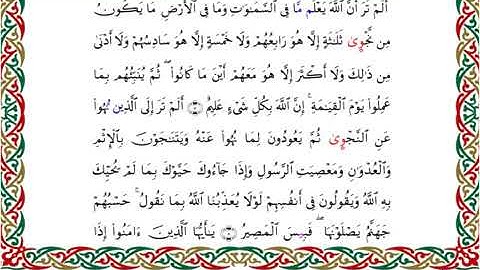 أَلَمْ تَرَ أَنَّ ٱللَّهَ يَعْلَمُ مَا فِى ٱلسَّمَـٰوَٰتِ وَمَا فِى ٱلْأَرْضِ مَا يَكُونُ
مِن نَّجْوَىٰ ثَلَـٰثَةٍ إِلَّا هُوَ رَابِعُهُمْ وَلَا خَمْسَةٍ إِلَّا هُوَ سَادِسُهُمْ وَلَآ أَدْنَىٰ
مِن ذَٰلِكَ وَلَآ أَكْثَرَ إِلَّا هُوَ مَعَهُمْ أَيْنَ مَا كَانُوا۟ ۖ ثُمَّ يُنَبِّئُهُم بِمَا
عَمِلُوا۟ يَوْمَ ٱلْقِيَـٰمَةِ ۚ إِنَّ ٱللَّهَ بِكُلِّ شَىْءٍ عَلِيمٌ ۝ أَلَمْ تَرَ إِلَى ٱلَّذِينَ نُهُوا۟
عَنِ ٱلنَّجْوَىٰ ثُمَّ يَعُودُونَ لِمَا نُهُوا۟ عَنْهُ وَيَتَنَـٰجَوْنَ بِٱلْإِثْمِ
وَٱلْعُدْوَٰنِ وَمَعْصِيَتِ ٱلرَّسُولِ وَإِذَا جَآءُوكَ حَيَّوْكَ بِمَا لَمْ يُحَيِّكَ
بِهِ ٱللَّهُ وَيَقُولُونَ فِىٓ أَنفُسِهِمْ لَوْلَا يُعَذِّبُنَا ٱللَّهُ بِمَا نَقُولُ ۚ حَسْبُهُمْ
جَهَنَّمُ يَصْلَوْنَهَا ۖ فَبِئْسَ ٱلْمَصِيرُ ۝ يَـٰٓأَيُّهَا ٱلَّذِينَ ءَامَنُوٓا۟ إِذَا